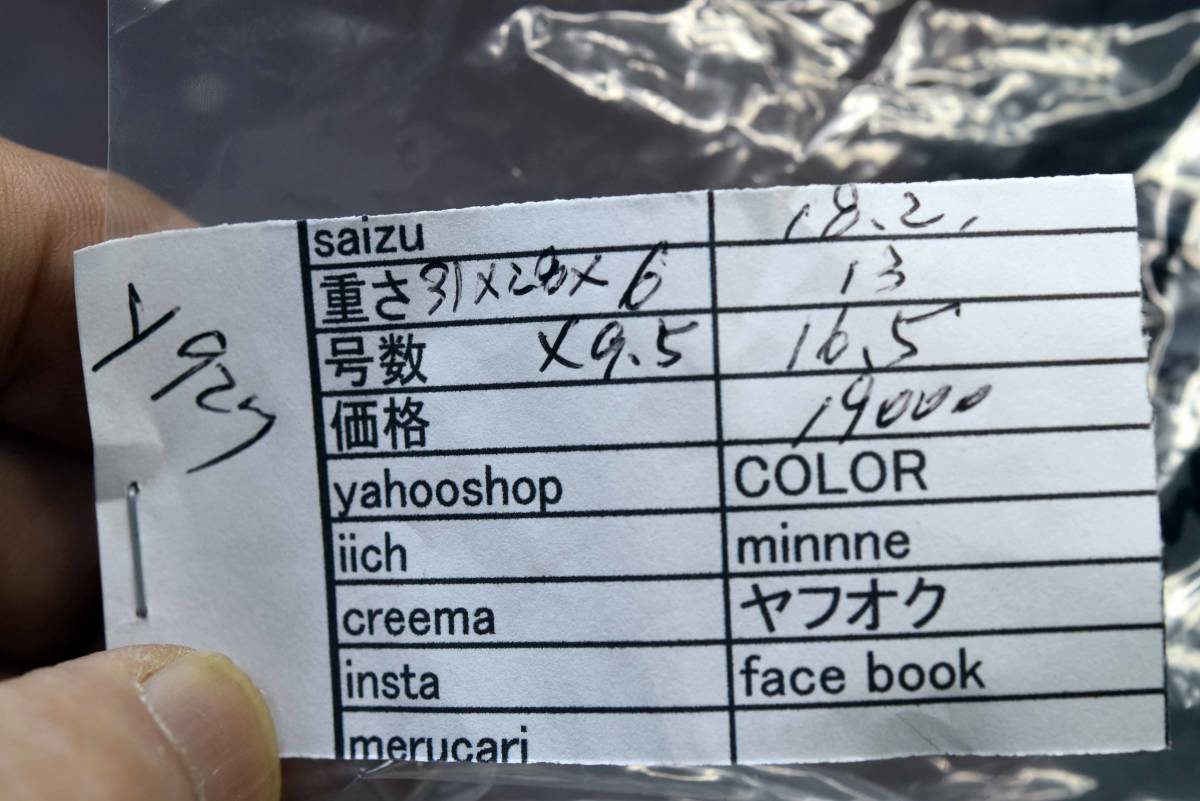 saizu 18.2
重さ 31×28×6 13
号数 ×9.5 16.5
価格 19000
yahooshop COLOR
iich minnne
creema ヤフオク
insta face book
merucari